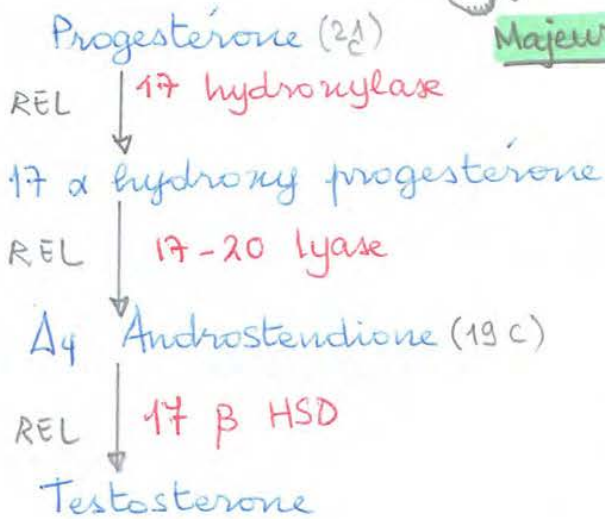 Progestérone (21c)
Majeur
REL 17 hydroxylase
17 α hydroxy progestérone
REL 17-20 lyase
Δ4 Androstendione (19 C)
REL 17 β HSD
Testosterone